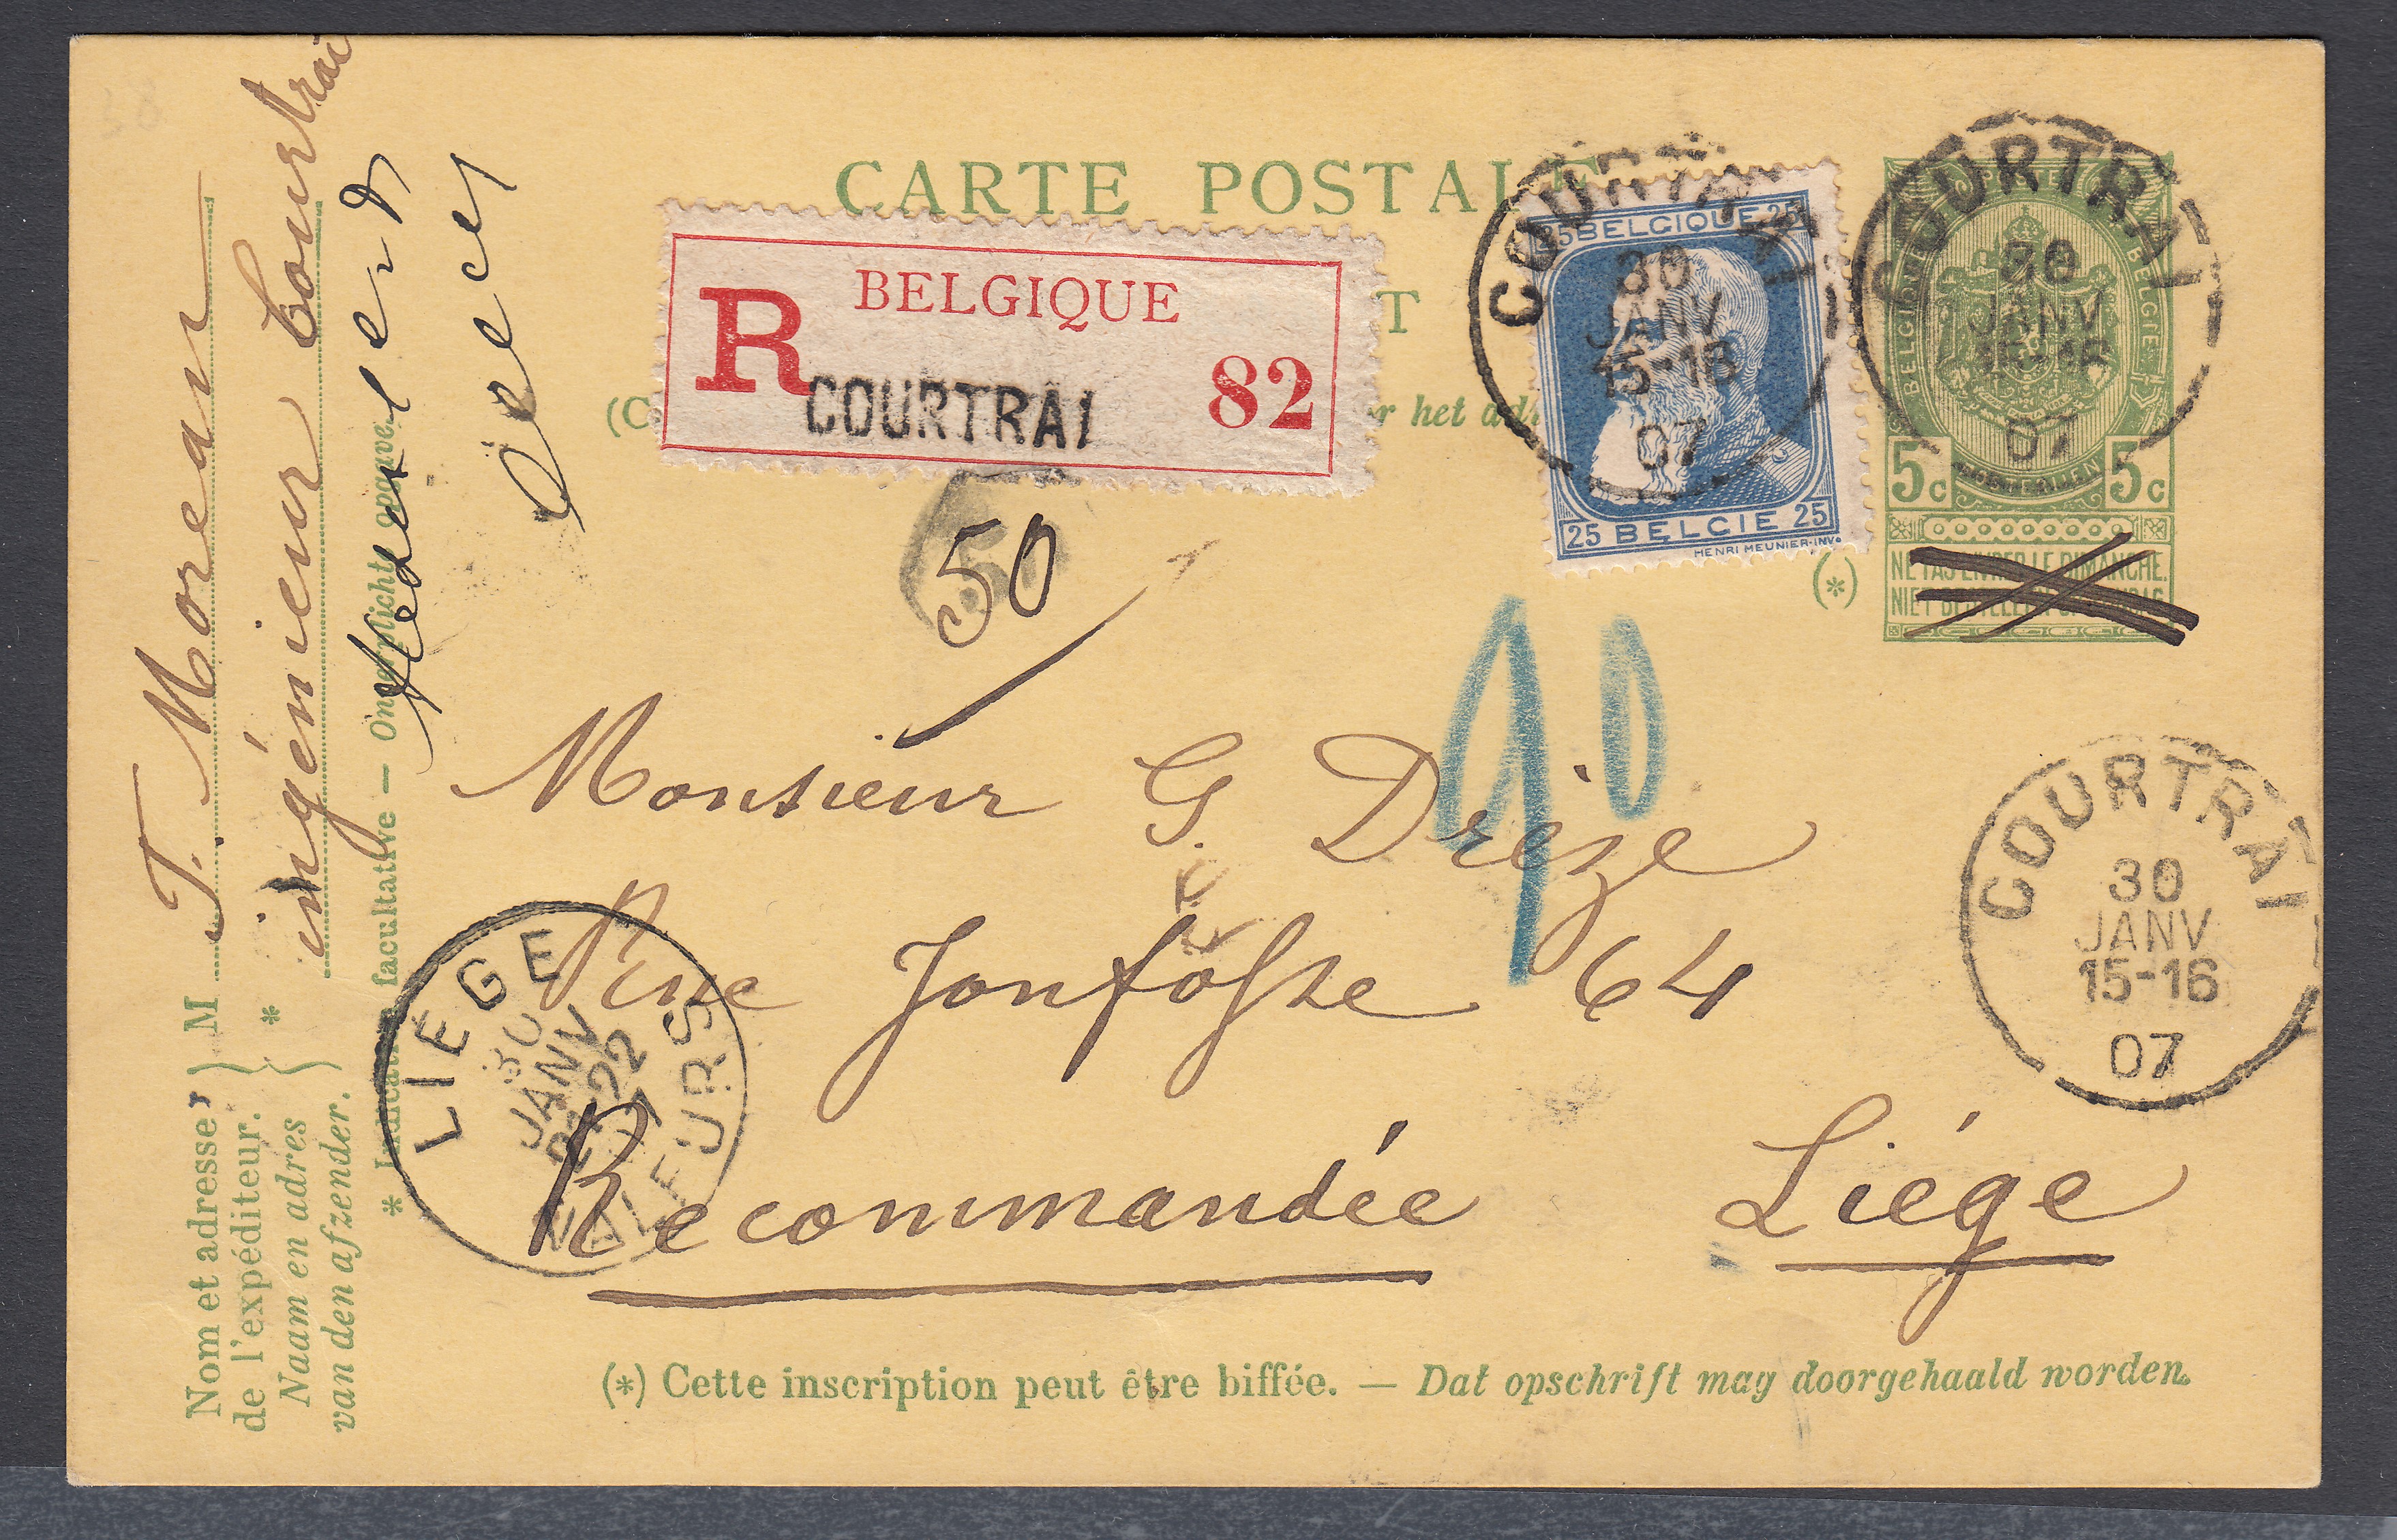 CARTE POSTALE
BELGIQUE
R
COURTRAI
82
T
(C
r het ad
COURTRAI
30
JANV
15-16
07
25 BELGIQUE 25
25 BELGIE 25
HENRI MEUNIER-INV.
COURTRAI
30
JANV
15-16
07
BELGIQUE
POSTES
BELGIE
5c
5c
NE PAS LIVRER LE DIMANCHE.
NIET BESTELLEN OP ZONDAG
(*)
50
90
Monsieur G. Drèze
Rue Jonfosse 64
Recommandée
Liége
COURTRAI
30
JANV
15-16
07
LIEGE
30
JANV
21-22
(*) Cette inscription peut être biffée. — Dat opschrift mag doorgehaald worden.
Nom et adresse
de l'expéditeur.
Naam en adres
van den afzender.
M
T. Moreau
*
ingénieur Courtrai
* Indication facultative — Onverplichte opgave.